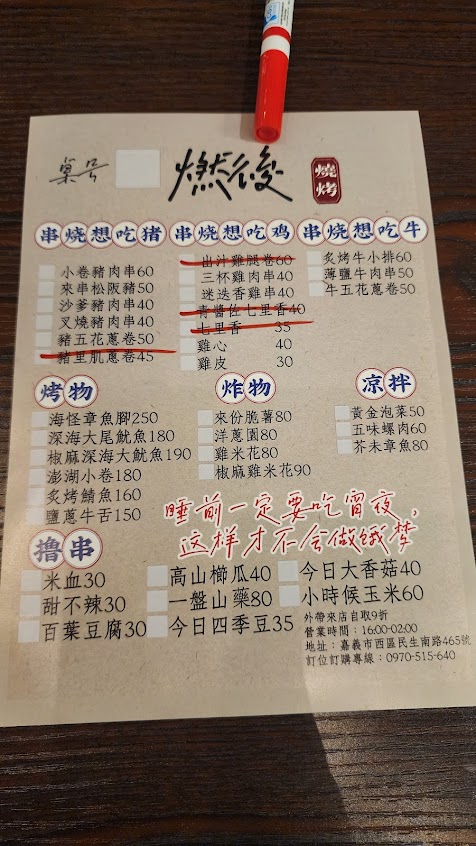 桌号
燃後
燒烤
串烧想吃猪
小卷豬肉串60
來串松阪豬50
沙爹豬肉串40
叉燒豬肉串40
豬五花蔥卷50
豬里肌蔥卷45
串烧想吃鸡
出汁雞腿卷60
三杯雞肉串40
迷迭香雞串40
青醬佐七里香40
七里香 35
雞心 40
雞皮 30
串烧想吃牛
炙烤牛小排60
薄鹽牛肉串50
牛五花蔥卷50
烤物
海怪章魚腳250
深海大尾魷魚180
椒麻深海大魷魚190
澎湖小卷180
炙烤鯖魚160
鹽蔥牛舌150
炸物
來份脆薯80
洋蔥園80
雞米花80
椒麻雞米花90
凉拌
黃金泡菜50
五味螺肉60
芥末章魚80
睡前一定要吃宵夜，
这样才不会做饿梦
撸串
米血30
甜不辣30
百葉豆腐30
高山櫛瓜40
一盤山藥80
今日四季豆35
今日大香菇40
小時候玉米60
外帶來店自取9折
營業時間：16:00-02:00
地址：嘉義市西區民生南路465號
訂位訂購專線：0970-515-640